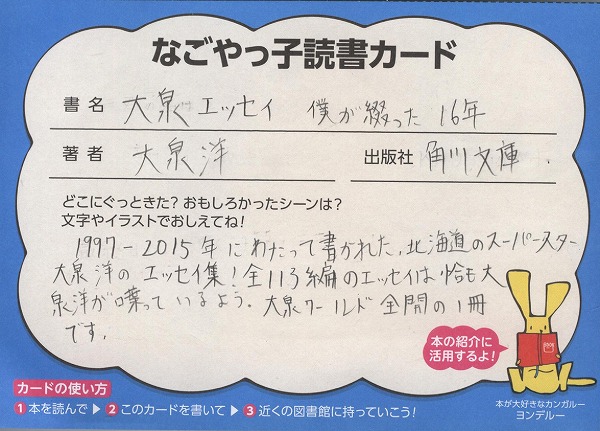 なごやっ子読書カード
書名 大泉エッセイ 僕が綴った16年
著者 大泉洋 出版社 角川文庫.
どこにぐっときた？おもしろかったシーンは？
文字やイラストでおしえてね！
1997-2015年にわたって書かれた、北海道のスーパースター
大泉洋のエッセイ集！全113編のエッセイは恰も大
泉洋が喋っているよう。大泉ワールド全開の1冊
です。
BOOK
本の紹介に
活用するよ！
カードの使い方
1 本を読んで ▶ 2 このカードを書いて ▶ 3 近くの図書館に持っていこう！
本が大好きなカンガルー
ヨンデルー